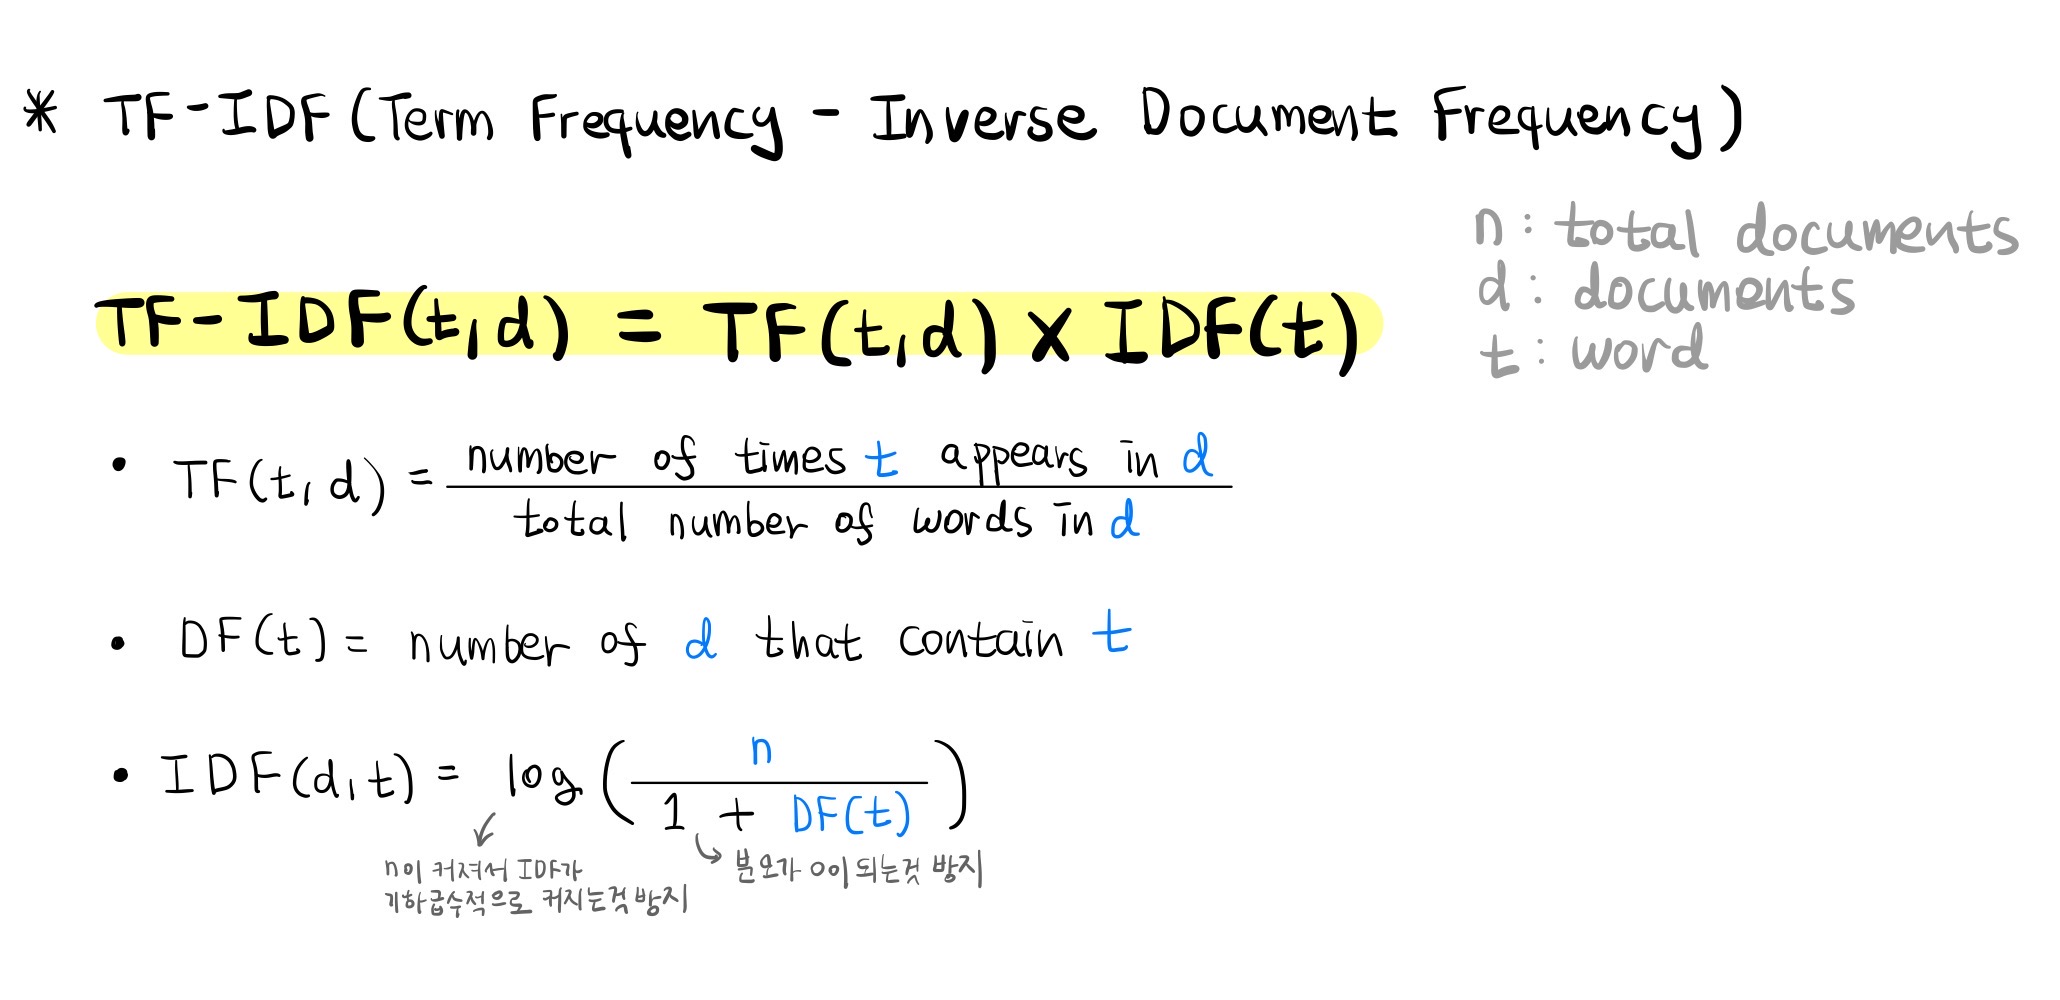 * TF-IDF (Term Frequency - Inverse Document Frequency)
n : total documents
d : documents
t : word
TF-IDF(t,d) = TF(t,d) x IDF(t)
• TF(t,d) = number of times t appears in d
total number of words in d
• DF(t) = number of d that contain t
• IDF(d,t) = log ( n
1 + DF(t) )
n이 커져서 IDF가
기하급수적으로 커지는것 방지
분모가 0이 되는것 방지